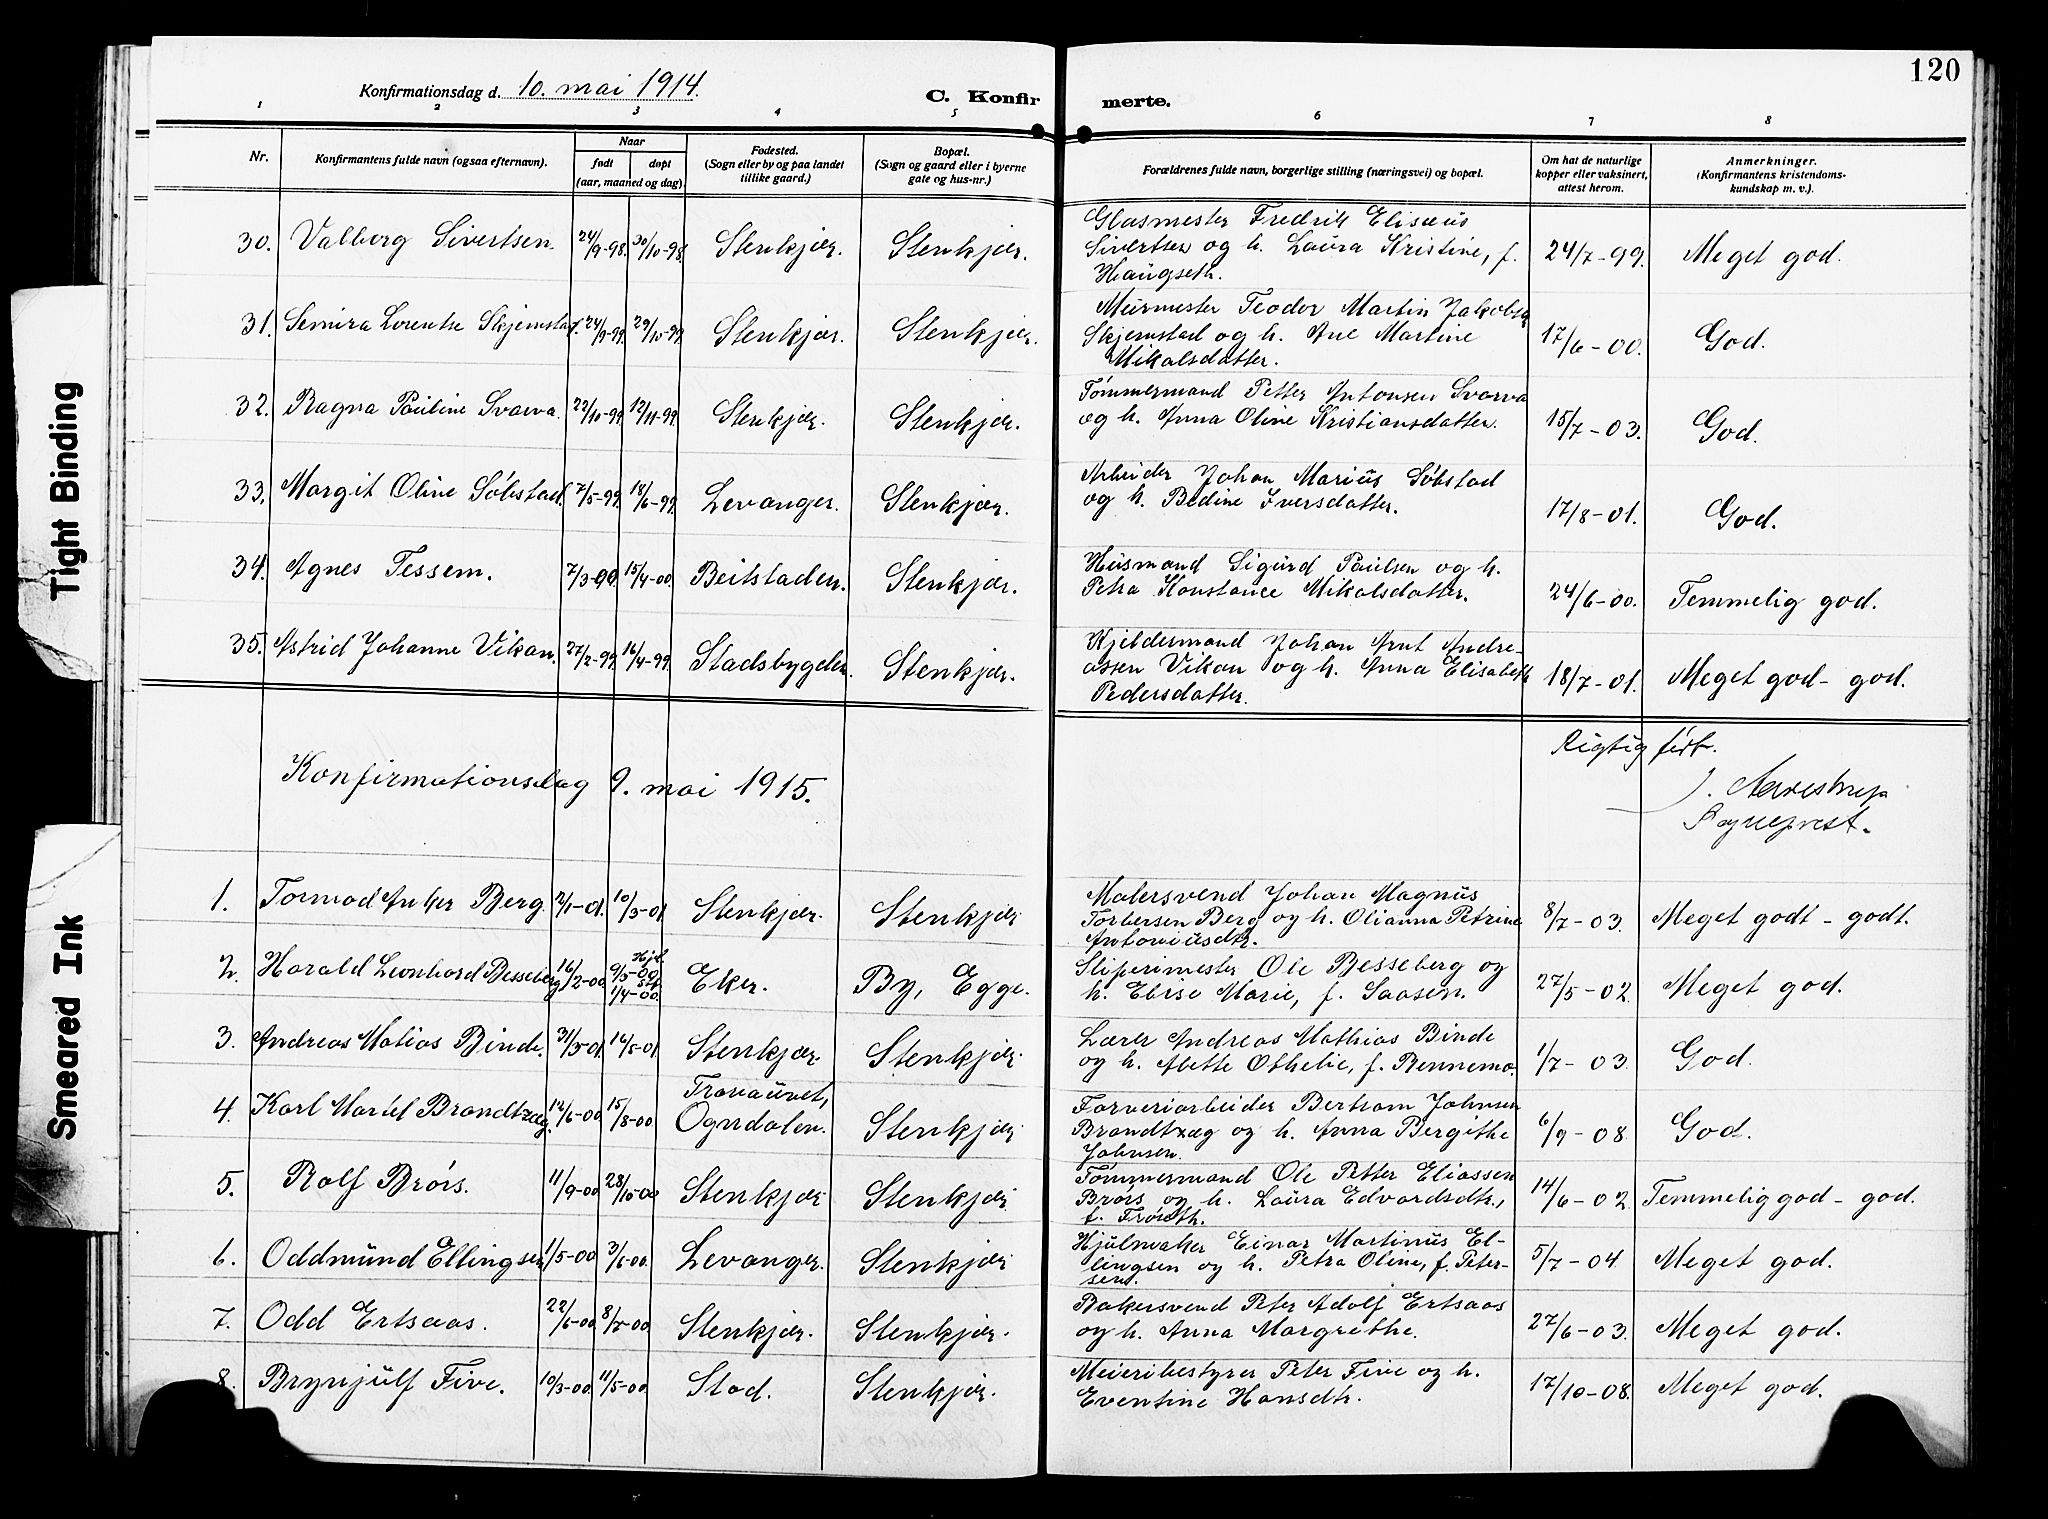 120
Konfirmationsdag d. 10. mai 1914.
C. Konfirmerte.
1 2 3 4 5 6 7 8
Nr.
Konfirmantens fulde navn (ogsaa efternavn).
Naar
født
døpt
(aar, maaned og dag).
Fødested.
(Sogn eller by og paa landet
tillike gaard.)
Bopæl.
(Sogn og gaard eller i byerne
gate og hus-nr.)
Forældrenes fulde navn, borgerlige stilling (næringsvei) og bopæl.
Om hat de naturlige
kopper eller vaksinert,
attest herom.
Anmerkninger.
(Konfirmantens kristendoms-
kundskap m. v.).
30. Valborg Sivertsen. 24/9-98. 30/10-98. Stenkjær. Stenkjær. Glasmester Fredrik Elisæus
Sivertsen og h. Laura Kristine, f. 24/7-99. Meget god.
Haugseth.
31. Semira Lorentse Skjemstad. 24/9-99. 29/10-99. Stenkjær. Stenkjær. Murmester Teodor Martin Jakobsen
Skjemstad og h. Ane Martine 17/6-00. God.
Mikalsdatter.
32. Ragna Pauline Svarva. 22/10-99. 12/11-99. Stenkjær. Stenkjær. Tømmermand Petter Antonsen Svarva
og h. Anna Oline Kristiansdatter. 15/7-03. God.
33. Margit Oline Søbstad. 7/5-99. 18/6-99. Levanger. Stenkjær. Arbeider Johan Marius Søbstad
og h. Bedine Iversdatter. 17/8-01. God.
34. Agnes Tessem. 7/3-00. 15/4-00. Beitstaden. Stenkjær. Husmand Sigurd Paulsen og h.
Petra Konstance Mikalsdatter. 24/6-00. Temmelig god.
35. Astrid Johanne Vikan. 27/2-99. 16/4-99. Stadsbygden. Stenkjær. Kjeldermand Johan Arnt Andre-
assen Vikan og h. Anna Elisabeth 18/7-01. Meget god - god.
Pedersdatter.
Rigtig ført.
Konfirmationsdag 9. mai 1915.
Sogneprest.
1. Tormod Anker Berg. 2/1-01. 10/3-01. Stenkjær. Stenkjær. Malersvend Johan Magnus
Torbersen Berg og h. Olianna Petrine 8/7-03. Meget godt - godt.
Antoniusdtr.
2. Harald Leonhard Besseberg. 16/2-00. Hjd. 9/3-00 stf. 1/4-00. Eker. By, Egge. Sliperimester Ole Besseberg og
h. Elise Marie, f. Saasen. 27/5-02. Meget god.
3. Andreas Matias Binde. 31/3-01. 16/5-01. Stenkjær. Stenkjær. Lærer Andreas Mathias Binde
og h. Abette Othelie, f. Rennemo. 1/7-03. God.
4. Karl Martel Brandtzæg. 12/6-00. 15/8-00.
Ogndalen. Stenkjær. Farveriarbeider Bertram Johnsen
Brandtzæg og h. Anna Bergithe 6/9-08. God.
Johnsen.
5. Rolf Brørs. 11/9-00. 28/10-00. Stenkjær. Stenkjær. Tømmermand Ole Petter Eliassen
Brørs og h. Laura Edvardsdtr., 14/6-02. Temmelig god - god.
f. Frøseth.
6. Oddmund Ellingsen. 1/5-00. 3/6-00. Levanger. Stenkjær. Hjulmaker Einar Martinus El-
lingsen og h. Petra Oline, f. Peter- 5/7-04. Meget god.
sen.
7. Odd Ertsaas. 22/6-00. 8/7-00. Stenkjær. Stenkjær. Bakersvend Peter Adolf Ertsaas
og h. Anna Margrethe. 27/6-03. Meget god.
8. Brynjulf Five. 10/3-00. 11/5-00. Stod. Stenkjær. Meieribestyrer Peter Five og h.
Eventine Hansdtr. 17/10-08. Meget god.
Tight Binding
Smeared Ink